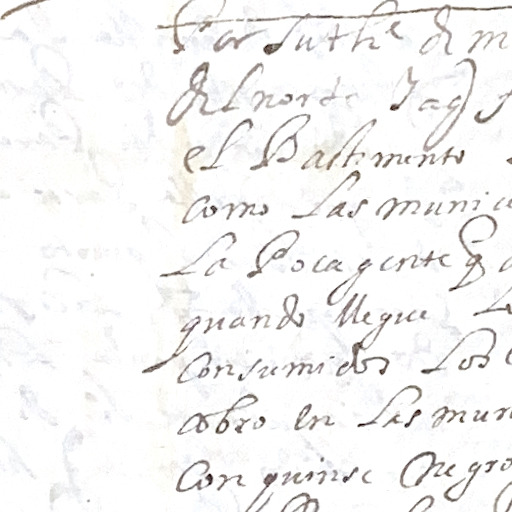 Por su the de m
del norte Jag
el Bastimento
como las munici
La Poca gente q
quando llegue Lo
consumidos Los
cobro en las mun
con quinse Negro